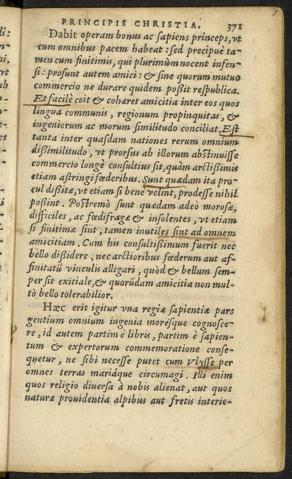 PRINCIPIS CHRISTIA. 371
Dabit operam bonus ac sapiens princeps, vt
cum omnibus pacem habeat: sed precipuè ta-
men cum finitimis, qui plurimùm nocent infen-
si: prosunt autem amici: & sine quorum mutuo
commercio ne durare quidem possit respublica.
Et facilè coit & cohæret amicitia inter eos quos
lingua communis, regionum propinquitas, &
ingeniorum ac morum similitudo conciliat. Est
tanta inter quasdam nationes rerum omnium
dissimilitudo, vt prorsus ab illorum abstinuisse
commercio longè consultius sit, quàm arctissimis
etiam astringi fœderibus. Sunt quædam ita pro-
cul dissitæ, vt etiam si bene velint, prodesse nihil
possint. Postremò sunt quædam adeo morosæ,
difficiles, ac fœdifragæ & insolentes, vt etiam
si finitimæ sint, tamen inutiles sint ad omnem
amicitiam. Cum his consultissimum fuerit nec
bello dissidere, nec arctioribus fœderum aut af-
finitatũ vinculis alligari, quòd & bellum sem-
per sit exitiale, & quorũdam amicitia non mul-
tò bello tolerabilior.
Hæc erit igitur vna regiæ sapientiæ pars
gentium omnium ingenia moresque cognosce-
re, id autem partim è libris, partim è sapien-
tum & expertorum commemoratione conse-
quetur, ne sibi necesse putet cum Vlysse per
omnes terras mariáque circumagi. Illi enim
quos religio diuersa à nobis alienat, aut quos
naturæ prouidentia alpibus aut fretis interie-